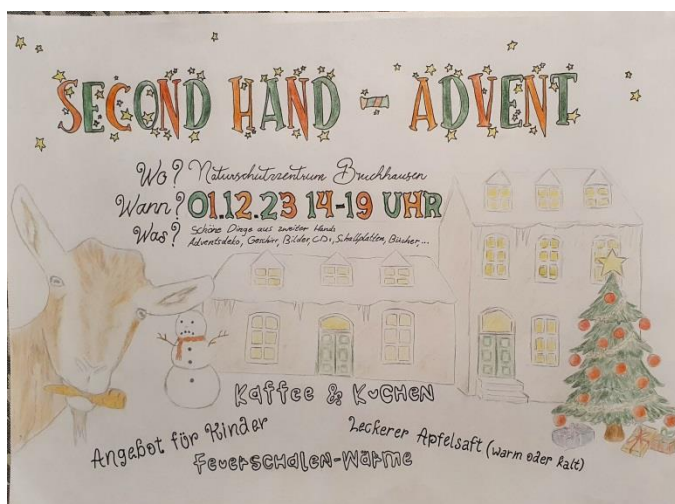 SECOND HAND - ADVENT
Wo? Naturschutzzentrum Bruchhausen
Wann? 01.12.23 14-19 UHR
Was? Schöne Dinge aus zweiter Hand:
Adventsdeko, Geschirr, Bilder, CDs, Schallplatten, Bücher, ...
Kaffee & Kuchen
Angebot für Kinder
Leckerer Apfelsaft (warm oder kalt)
Feuerschalen-Wärme